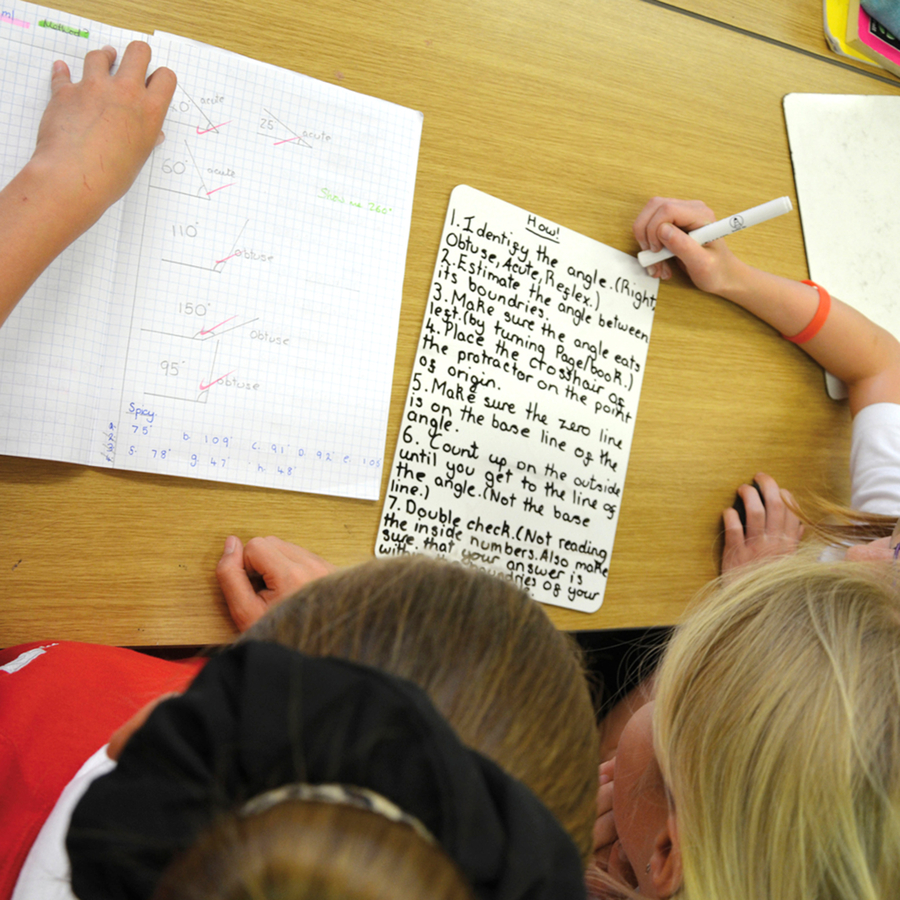 ml
Method?
acute
25° acute
60° acute
Show me 260°
110° obtuse
150° obtuse
95° obtuse
Spicy
75° b. 109° c. 91° D. 92° e. 105
f. 78° g. 47° h. 48°
How!
1. Identify the angle. (Right,
Obtuse, Acute, Reflex.)
2. Estimate the angle between
its boundries.
3. Make sure the angle eats
lest. (by turning Page/book.)
4. Place the crosshair of
the protractor on the point
of origin.
5. Make sure the zero line
is on the base line of the
angle.
6. Count up on the outside
until you get to the line of
the angle. (Not the base
line.)
7. Double check. (Not reading
the inside numbers. Also make
sure that your answer is
boundries of your